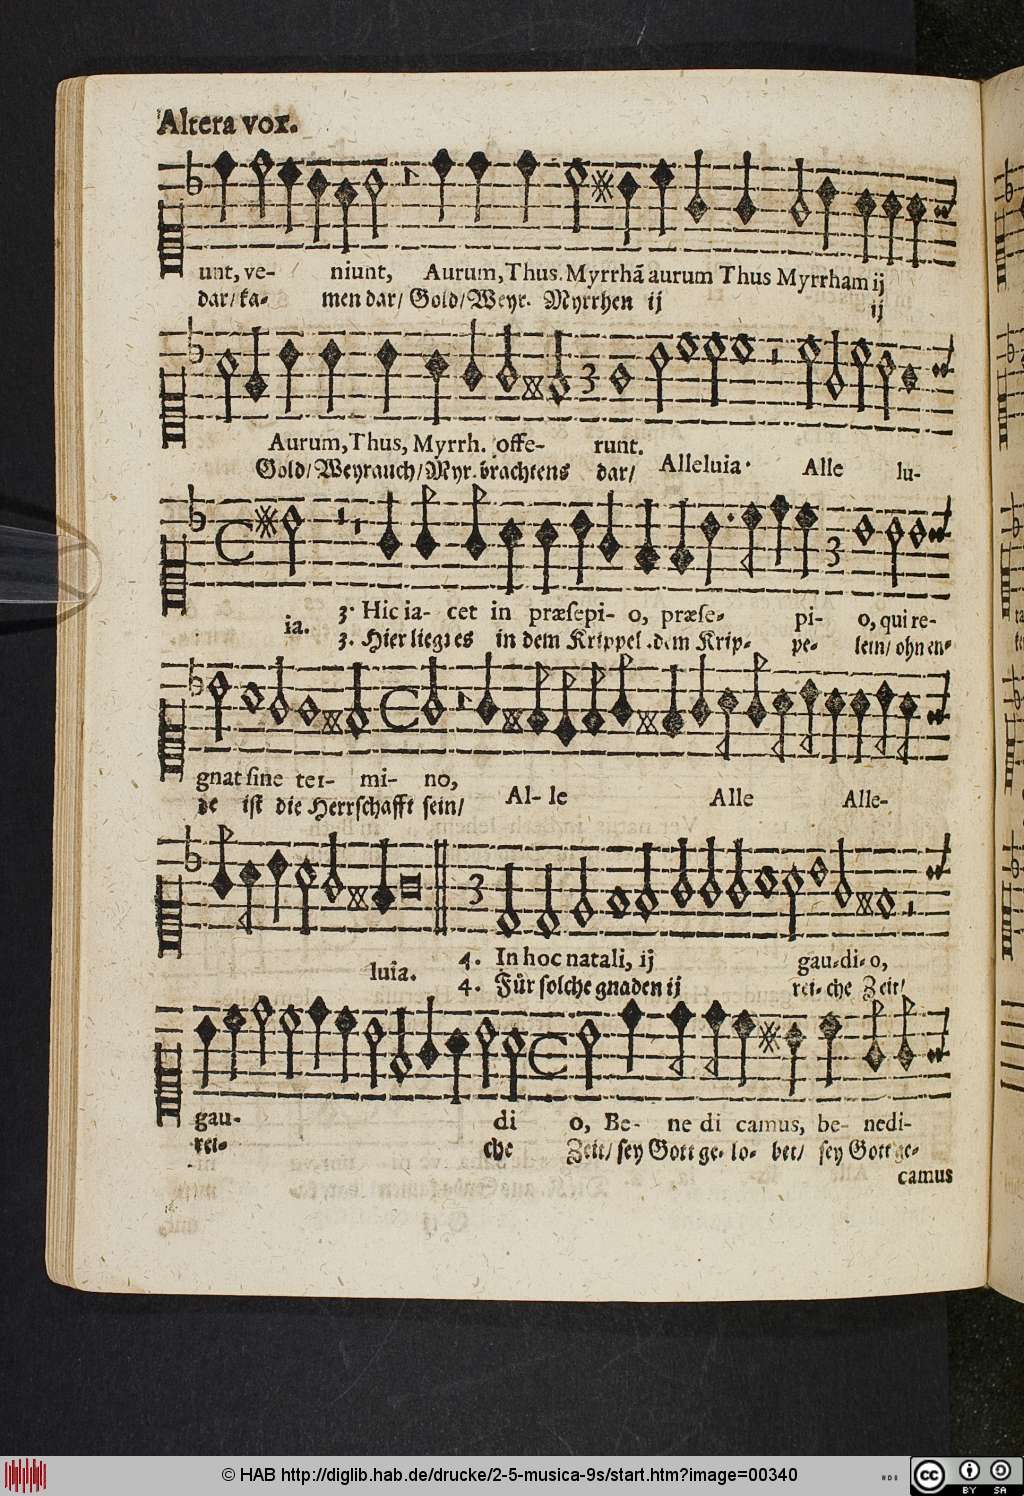 Altera vox.
unt, ve- niunt, Aurum, Thus. Myrrhã aurum Thus Myrrham ij
dar/ ka- men dar/ Gold/ Weyr. Myrrhen ij ij
Aurum, Thus, Myrrh. offe- runt.
Gold/ Weyrauch/ Myr. brachtens dar/ Alleluia. Alle lu-
ia. 3. Hic ia- cet in præsepi- o, præse- pi- o, qui re-
3. Hier liegt es in dem Krippel. dem Krip- pe- lein/ ohn en-
gnat sine ter- mi- no,
de ist die Herrschafft sein/ Al- le Alle Alle-
luia. 4. In hoc natali, ij gau-di-o,
4. Für solche gnaden ij rei-che Zeit/
gau- di o, Be- ne di camus, be- nedi-
rei- che Zeit/ sey Gott ge- lo- bet/ sey Gott ge-
camus
© HAB http://diglib.hab.de/drucke/2-5-musica-9s/start.htm?image=00340
cc BY SA